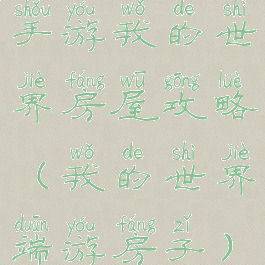 shǒu yóu wǒ de shì
手游我的世
jiè fáng wū gōng lüè
界房屋攻略
wǒ de shì jiè
（我的世界
duān yóu fáng zǐ
端游房子）